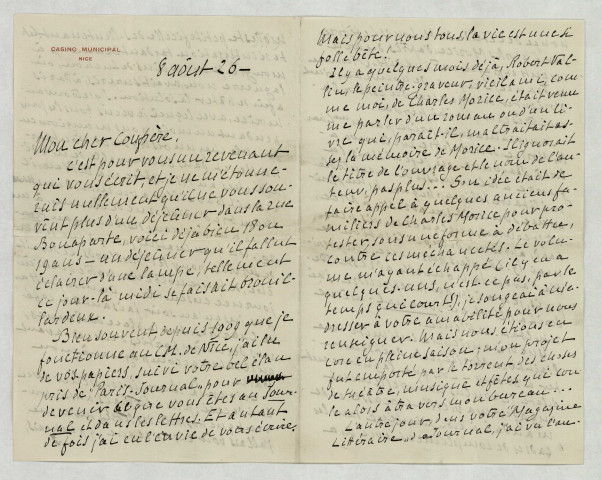 CASINO MUNICIPAL
NICE
8 août 26 —
Mon cher Confrère,
c'est pour vous un revenant
qui vous écrit, et je ne m'étonne-
rais nullement qu'il ne vous sou-
vînt plus d'un déjeûner dans la rue
Bonaparte, voici déjà bien 18 ou
19 ans — un déjeûner qu'il fallut
éclairer d'une lampe, tellement
ce jour-là midi se faisait brouil-
lardeux.
Bien souvent depuis 1909 que je
fonctionne au C.M. de Nice, j'ai lu
de vos papiers, suivi votre bel élan
pris de "Paris-Journal" pour
devenir ce que vous êtes au Jour-
nal et dans les lettres. Et autant
de fois j'ai eu l'envie de vous écrire.
Mais pour nous tous, la vie est une si
folle bête!
Il y a quelques mois déjà, Robert Val-
lin le peintre-graveur, vieil ami, com-
me moi, de Charles Morice, était venu
me parler d'un roman ou d'un li-
vre qui, paraît-il, maltraitait as-
sez la mémoire de Morice. Il ignorait
le titre de l'ouvrage et le nom de l'au-
teur, pas plus... Son idée était de
faire appel à quelques anciens fa-
miliers de Charles Morice pour pro-
tester, sous une forme à débattre,
contre ces méchancetés. Le volu-
me m'ayant échappé (il y en a
quelques-uns, n'est-ce pas, par le
temps qui court), je songeai à m'a-
dresser à votre amabilité pour nous
renseigner. Mais nous étions en
core en pleine saison, mon projet
fut emporté par le torrent des choses
de théâtre, musique et fêtes qui cou
le alors à travers mon bureau...
L'autre jour, dans votre "Magazine
Littéraire" du Journal, j'ai vu l'an-